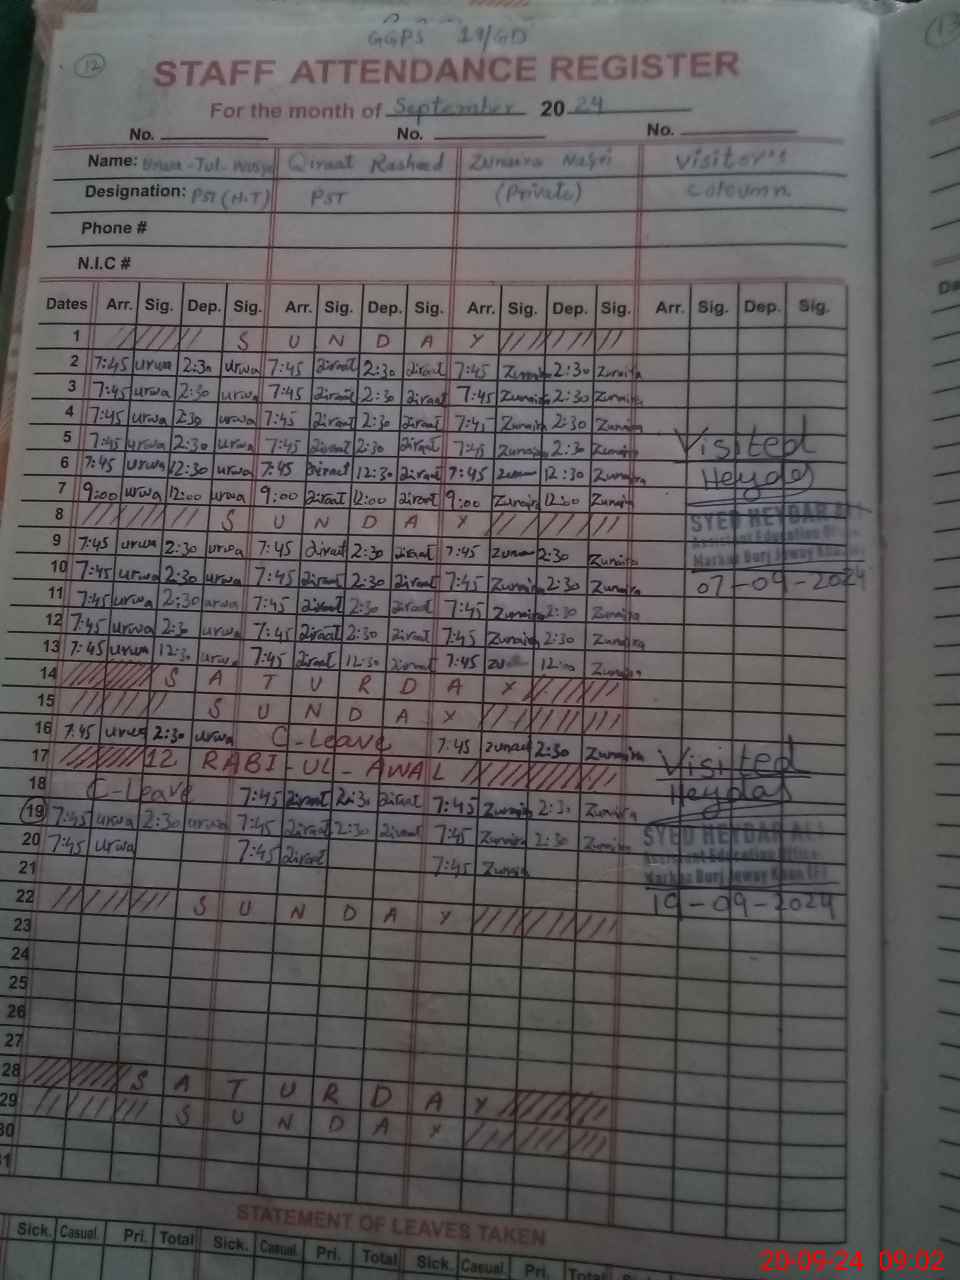 GGPS 19/GD
12
STAFF ATTENDANCE REGISTER
For the month of September 2024
No. No. No.
Name: Urwa-Tul- Qiraat Rasheed Zunaira Visitor's
Designation: PST (H.T) PST (Private) coloumn.
Phone #
N.I.C #
Dates Arr. Sig. Dep. Sig. Arr. Sig. Dep. Sig. Arr. Sig. Dep. Sig. Arr. Sig. Dep. Sig.
1 S U N D A Y
2 7:45 urwa 2:30 urwa 7:45 Qiraat 2:30 Qiraat 7:45 Zunaira 2:30 Zunaira
3 7:45 urwa 2:30 urwa 7:45 Qiraat 2:30 Qiraat 7:45 Zunaira 2:30 Zunaira
4 7:45 urwa 2:30 urwa 7:45 Qiraat 2:30 Qiraat 7:45 Zunaira 2:30 Zunaira
5 7:45 urwa 2:30 urwa 7:45 Qiraat 2:30 Qiraat 7:45 Zunaira 2:30 Zunaira
Visited
6 7:45 urwa 12:30 urwa 7:45 Qiraat 12:30 Qiraat 7:45 12:30 Zunaira
Heydar
7 9:00 urwa 12:00 urwa 9:00 Qiraat 12:00 Qiraat 9:00 Zunaira 12:00 Zunaira
8 S U N D A Y
SYED HEYDAR ALI
Assistant Education
9 7:45 urwa 2:30 urwa 7:45 Qiraat 2:30 Qiraat 7:45 2:30 Zunaira
Markaz Burj Jeway Khan
10 7:45 urwa 2:30 urwa 7:45 Qiraat 2:30 Qiraat 7:45 Zunaira 2:30 Zunaira
07-09-2024
11 7:45 urwa 2:30 urwa 7:45 Qiraat 2:30 Qiraat 7:45 Zunaira 2:30 Zunaira
12 7:45 urwa 2:30 urwa 7:45 Qiraat 2:30 Qiraat 7:45 Zunaira 2:30 Zunaira
13 7:45 urwa 12:30 urwa 7:45 Qiraat 12:30 Qiraat 7:45 Zunaira
14 S A T U R D A Y
15 S U N D A Y
16 7:45 urwa 2:30 urwa C-Leave 7:45 2:30 Zunaira
17 12 RABI-UL-AWAL
Visited
18 C-Leave 7:45 Qiraat 2:30 Qiraat 7:45 Zunaira 2:30 Zunaira
Heydar
19 7:45 urwa 2:30 urwa 7:45 Qiraat 2:30 Qiraat 7:45 Zunaira 2:30 Zunaira
SYED HEYDAR ALI
20 7:45 urwa 7:45 Qiraat 7:45 Zunaira
Assistant Education
Markaz Burj Jeway Khan
21
19-09-2024
22 S U N D A Y
23
24
25
26
27
28 S A T U R D A Y
29 S U N D A Y
30
31
STATEMENT OF LEAVES TAKEN
Sick. Casual. Pri. Total Sick. Casual. Pri. Total Sick. Casual. Pri. Total
20-09-24 09:02